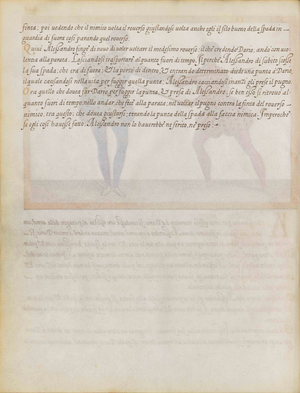 finta: poi vedendo che il nimico volta il roverso pigliandosi volta anche egli il filo buono della spada in
guardia di fuore così parando quel roverso.
Quivi Alessandro finge di novo di voler voltare il medesimo roverso: il che credendo Dario, ando con vio
lenza alla parata. Lasciandosi trasportare alquanto fuori di tempo. Il perche Alessandro di subito
la sua spada, che era di fuore, Et la portò di dentro, Et entrando determinato diede una punta a Dario,
il quale cansandosi nella vita per fuggir quella punta. Alessandro caminandogli innanti gli prese il pugno
Ora quello che dovea far Dario per fuggir la punta, Et presa di Alessandro, se ben egli si ritrovò al
quanto fuori di tempo nello andar che fece alla parata; nel voltar il pugno contra la finta del roverso
nimico, era questo; che dovea tenendo la punta della spada alla faccia nimica. Imperoche
se egli così havesse fatto Alessandro non lo hauerebbe ne ferito, ne preso.